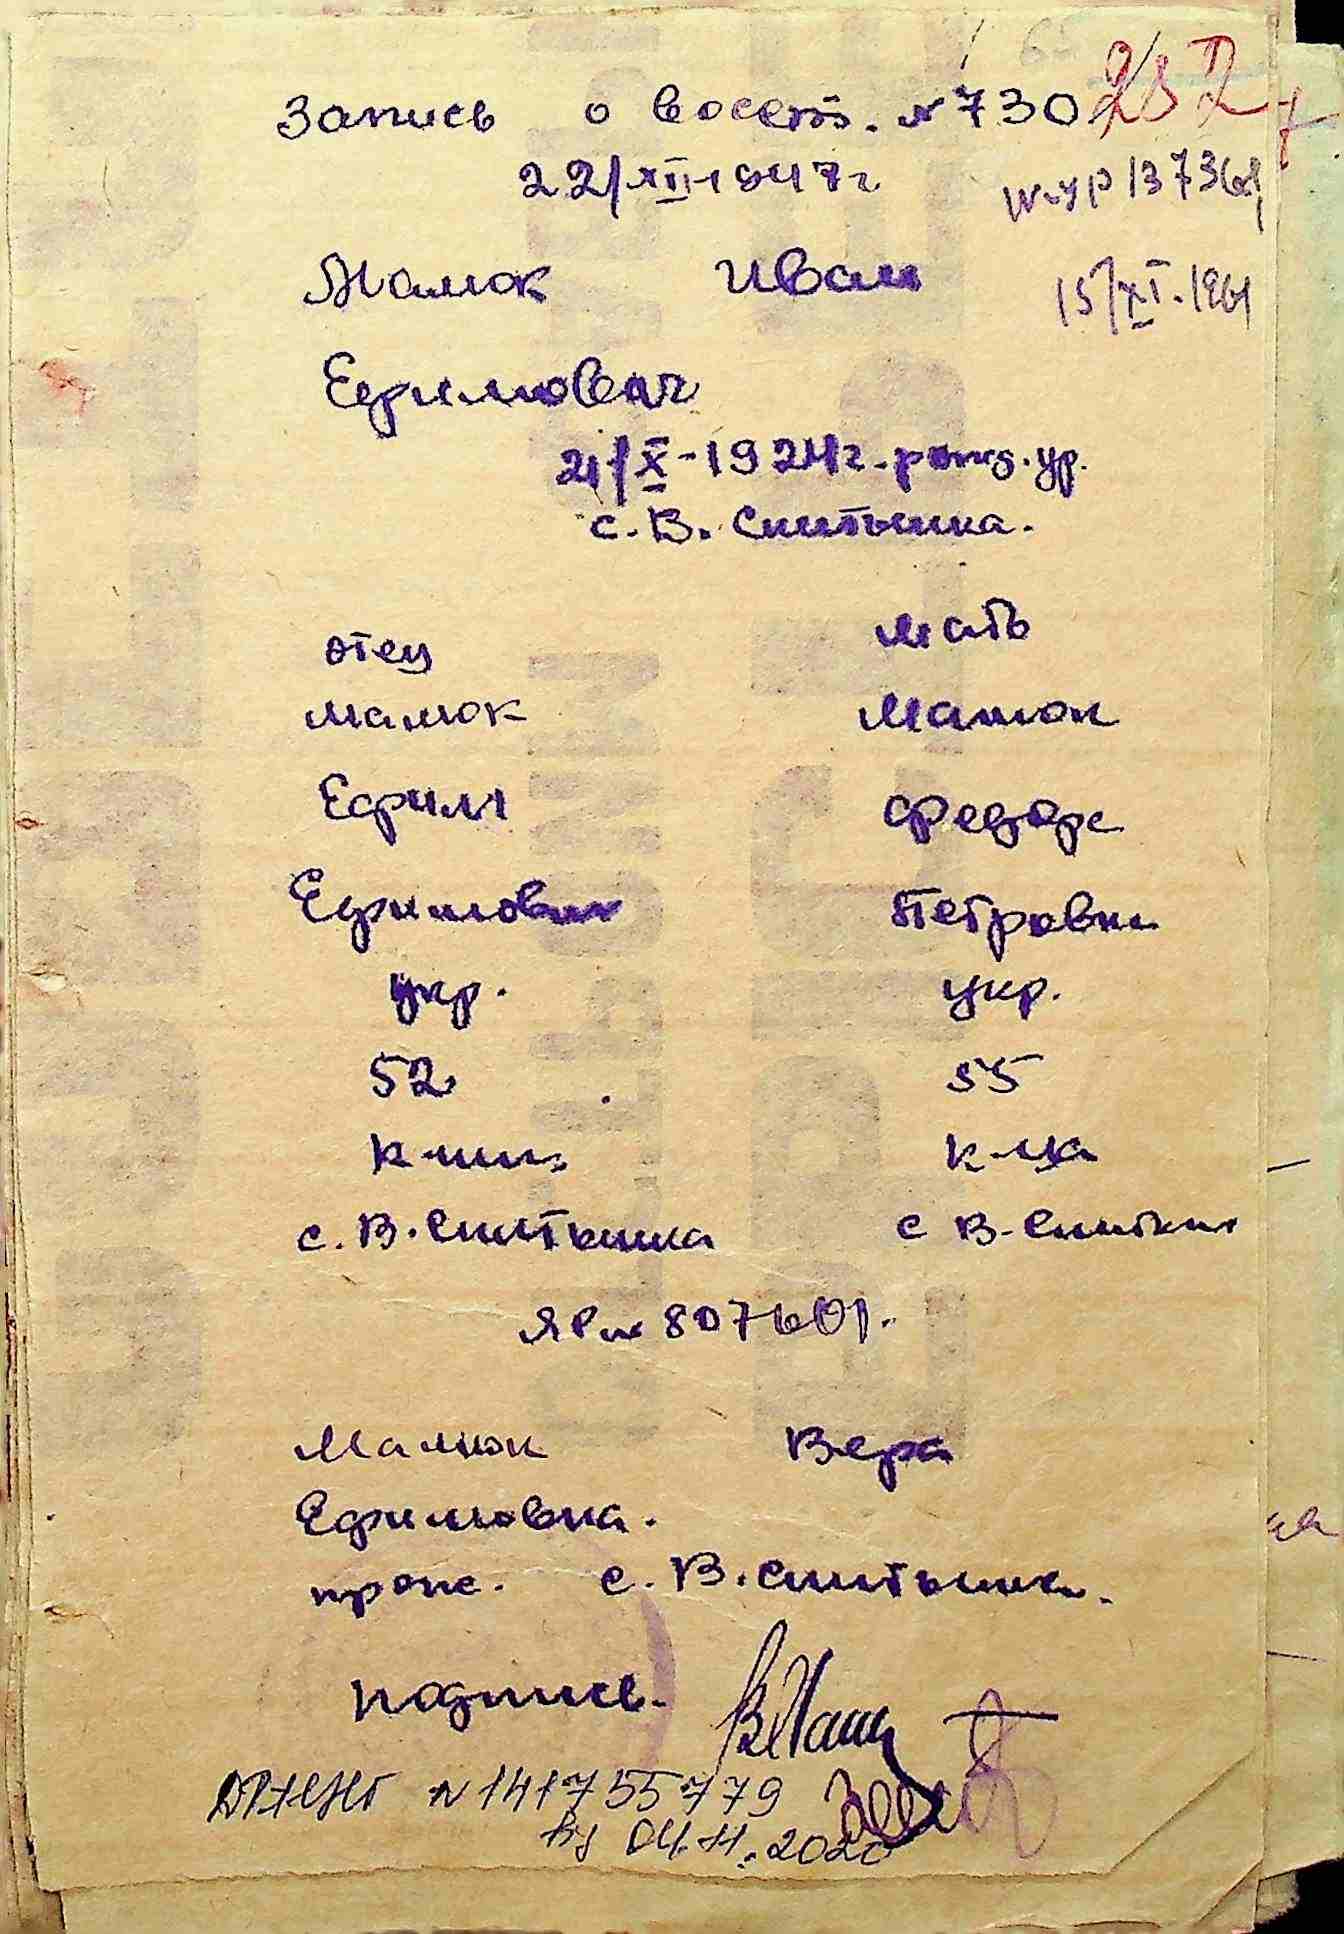 Запись о восст. №730 252
22/XII-1947г
IV-УР 137361
Малюк Иван
15/XI.1961
Ефимович
21/X-1924г. рожд. ур.
с. В. Снитынка.
отец мать
Малюк Малюк
Ефим Федора
Ефимович Петровна
укр. укр.
52 55
к-ник к-ца
с. В. Снитынка с В-Снитынка
ЯР № 807601.
Малюк Вера
Ефимовна.
прож. с. В. Снитынка.
подпись.
ДРАЦСГ №141755779
від 04.11.2020